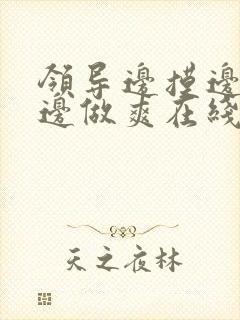 領导邊摸邊
邊做爽在綫
天之夜林